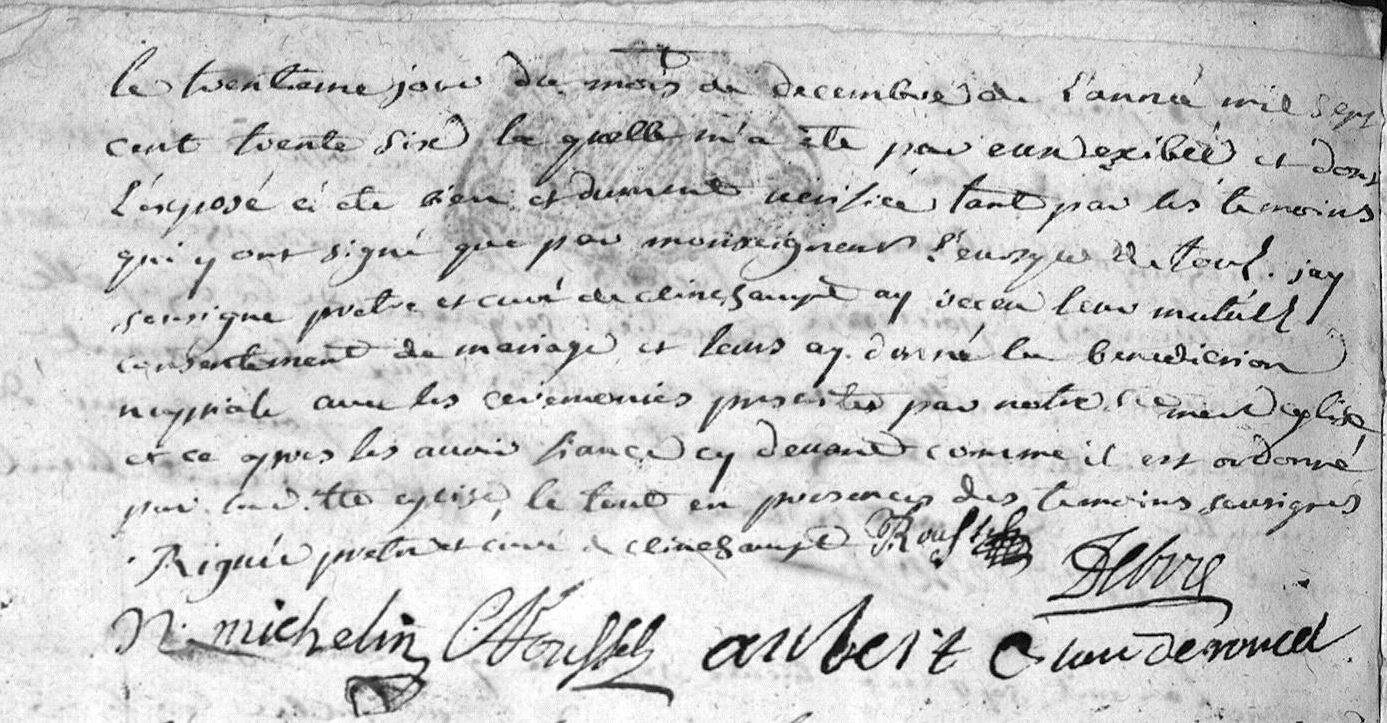 le trentieme jour du mois de decembre de l'anneé mil sept
cent trente six la quelle m'a ète par eux exibeé et dont
l'exposé à ète bien et dument verifieé tant par les temoins
qui y ont signé que par monseigneur l'eveque de toul. jay
sousigne pretre et curé de clinchampt ay receu leur mutuël
consentement de mariage et leurs ay donné la benediction
nuptiale avec les ceremonies prescrites par notre Ste mere eglise
et ce apres les avoir fiancé cy devant comme il est ordonné
par lad. tte eglise, le tout en presences des temoins sousignés
pretre et curé de clinchampt Roussel Febvre
N. michelin C. Roussel aubert Claude roucel